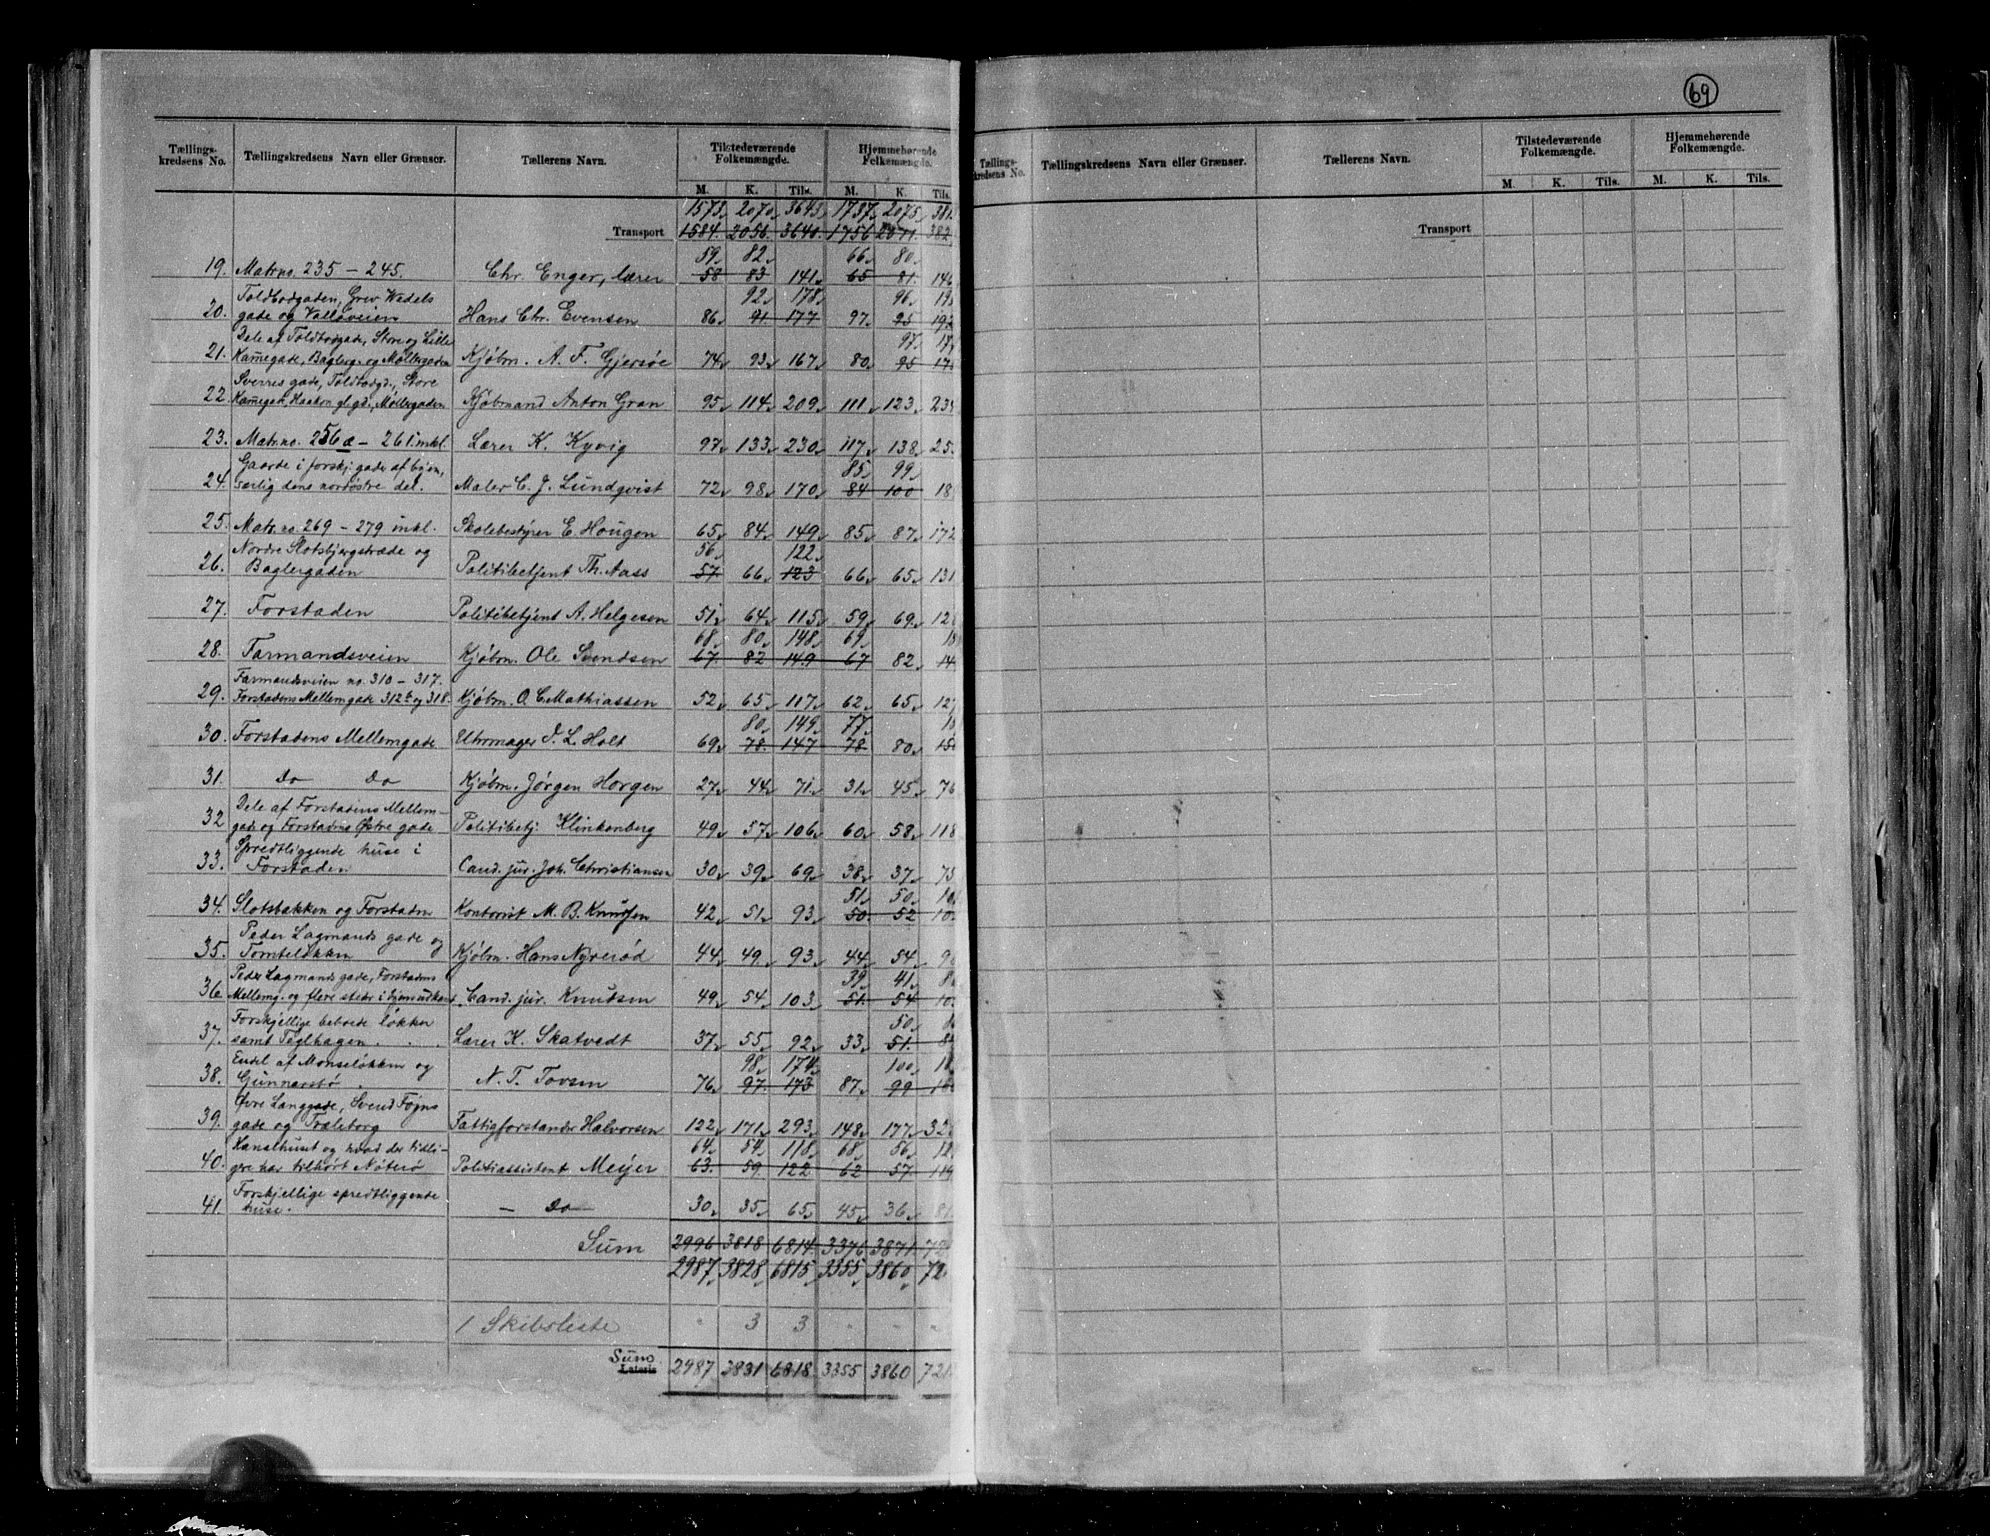 69
Tællings-kredsens No. Tællingskredsens Navn eller Grænser. Tællerens Navn. Tilstedeværende Folkemængde. Hjemmehørende Folkemængde.
M. K. Tils. M. K. Tils.
1573 2070 3643 1737 2075 381
Transport 1584. 2056. 3640. 1756 2071. 382
59 82 66 80
19. Matr.no. 235 - 245. Chr. Enger, lærer 58 83 141 65 81. 146
Toldbodgaden, Grev Wedels 92 178 96 19
20. gade og Valløveien Hans Chr. Evensen 86 91 177 97 95 192
Dele af Toldbodgade, Store og Lille 97 17
21. Kamegade, Bagleg. og Møllergaden Kjøbm. A. F. Gjersøe 74 93 167 80 95 17
Sverres gade, Toldbodgd., Store
22. Kamegade, Haakon gl. gd., Møllergaden Kjøbmand Anton Gran 95 114 209 111 123 23
23. Matr.no. 256a - 261 inkl. Lærer K. Kyvig 97 133 230 117 138 25
Gaarde i forskj. gader af byen, 85 99
24. særlig dens nordøstre del. Maler C. J. Lundqvist 72 98 170 84 100 18
25. Matr.no. 269 - 279 inkl. Skolebestyrer E. Hougen 65 84 149 85 87 172
Nordre Slotsbjergstræde og 56 122
26. Baglergaden Politibetjent Th. Aass 57 66 123 66 65 131
27. Forstaden Politibetjent A. Helgesen 51 64 115 59 69 12
68 80 148 69 1
28. Farmandsveien Kjøbm. Ole Svendsen 67. 82 149 67 82 14
Farmandsveien no. 310 - 317.
29. Forstadens Mellemgade 312b og 318. Kjøbm. O. C. Mathiassen 52 65 117 62 65 127
80 149 77 1
30. Forstadens Mellemgade Uhrmager J. L. Holt 69 78. 147 78 80 15
31. Do Do Kjøbm. Jørgen Horgen 27 44 71 31 45 76
Dele af Forstadens Mellem-
32 gade og Forstadens Østre gade Politibetj. Klinkenberg 49 57 106 60 58 118
Spredtliggende huse i
33. Forstaden Cand. jur. Joh. Christiansen 30 39 69 38 37 75
51 50 10
34. Slotsbakken og Forstaden Kontorist M. B. Knudsen 42 51 93 50. 52 10
Peder Lagmands gade og
35. Tomteløkken Kjøbm. Hans Nyerød 44 49 93 44 54 9
Peder Lagmands gade, Forstadens 39 41 8
36 Mellemg. og flere steder i byens udkant. Cand. jur. Knudsen 49 54 103 51. 54 10
Forskjellige beboede løkker 50 8
37. samt Teglhagen . . . Lærer K. Skatvedt 37 55 92 33 51. 8
Endel af Monseløkken og 98 174 100 18
38. Gunnarsbø . N. T. Tovsen 76 97. 173 87 99 18
Øvre Langgade, Svend Føyns
39. gade og Træleborg Fattigforstander Halvorsen 122 171 293 148 177 32
Kanalhuset og hvad der tidli- 64 54 118 68 56 12
40. gere har tilhørt Nøterø Politiassistent Meyer 63. 59. 122 62 57. 119
Forskjellige spredtliggende
41. huse. - Do - 30 35 65 45 36 81
Sum 2996 3818 6814. 3376 3871. 72
2987 3828 6815 3355 3860 72
1 Skibsliste " 3 3 " " "
Sum
Lateris 2987 3831 6818 3355 3860 721
Tællings-kredsens No. Tællingskredsens Navn eller Grænser. Tællerens Navn. Tilstedeværende Folkemængde. Hjemmehørende Folkemængde.
M. K. Tils. M. K. Tils.
Transport